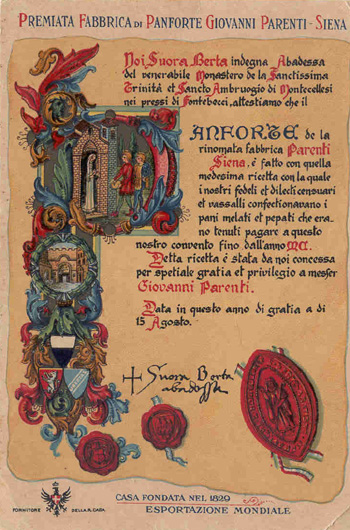 PREMIATA FABBRICA DI PANFORTE GIOVANNI PARENTI - SIENA
Noi Suora Berta indegna Abadessa
del venerabile Monastero de la Sanctissima
Trinità et Sancto Ambruogio di Montecellesi
nei pressi di Fontebecci, attestiamo che il
PANFORTE de la
rinomata fabbrica Parenti
Siena, è fatto con quella
medesima ricetta con la quale
i nostri fedeli et dilecti censuari
et vassalli confectionavano i
pani melati et pepati che era-
no tenuti pagare a questo
nostro convento fino dall'anno MC.
Detta ricetta è stata da noi concessa
per spetiale gratia et privilegio a messer
Giovanni Parenti.
Data in questo anno di gratia a di
15 Agosto.
+ Suora Berta
abadessa
FORNITORE DELLA R. CASA
CASA FONDATA NEL 1829
ESPORTAZIONE MONDIALE